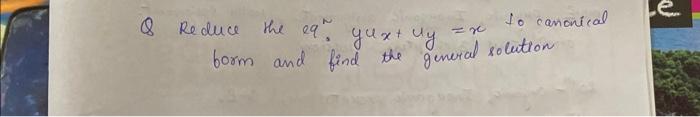 Q Reduce the eqⁿ. yux + uy = x to canonical
form and find the general solution
le